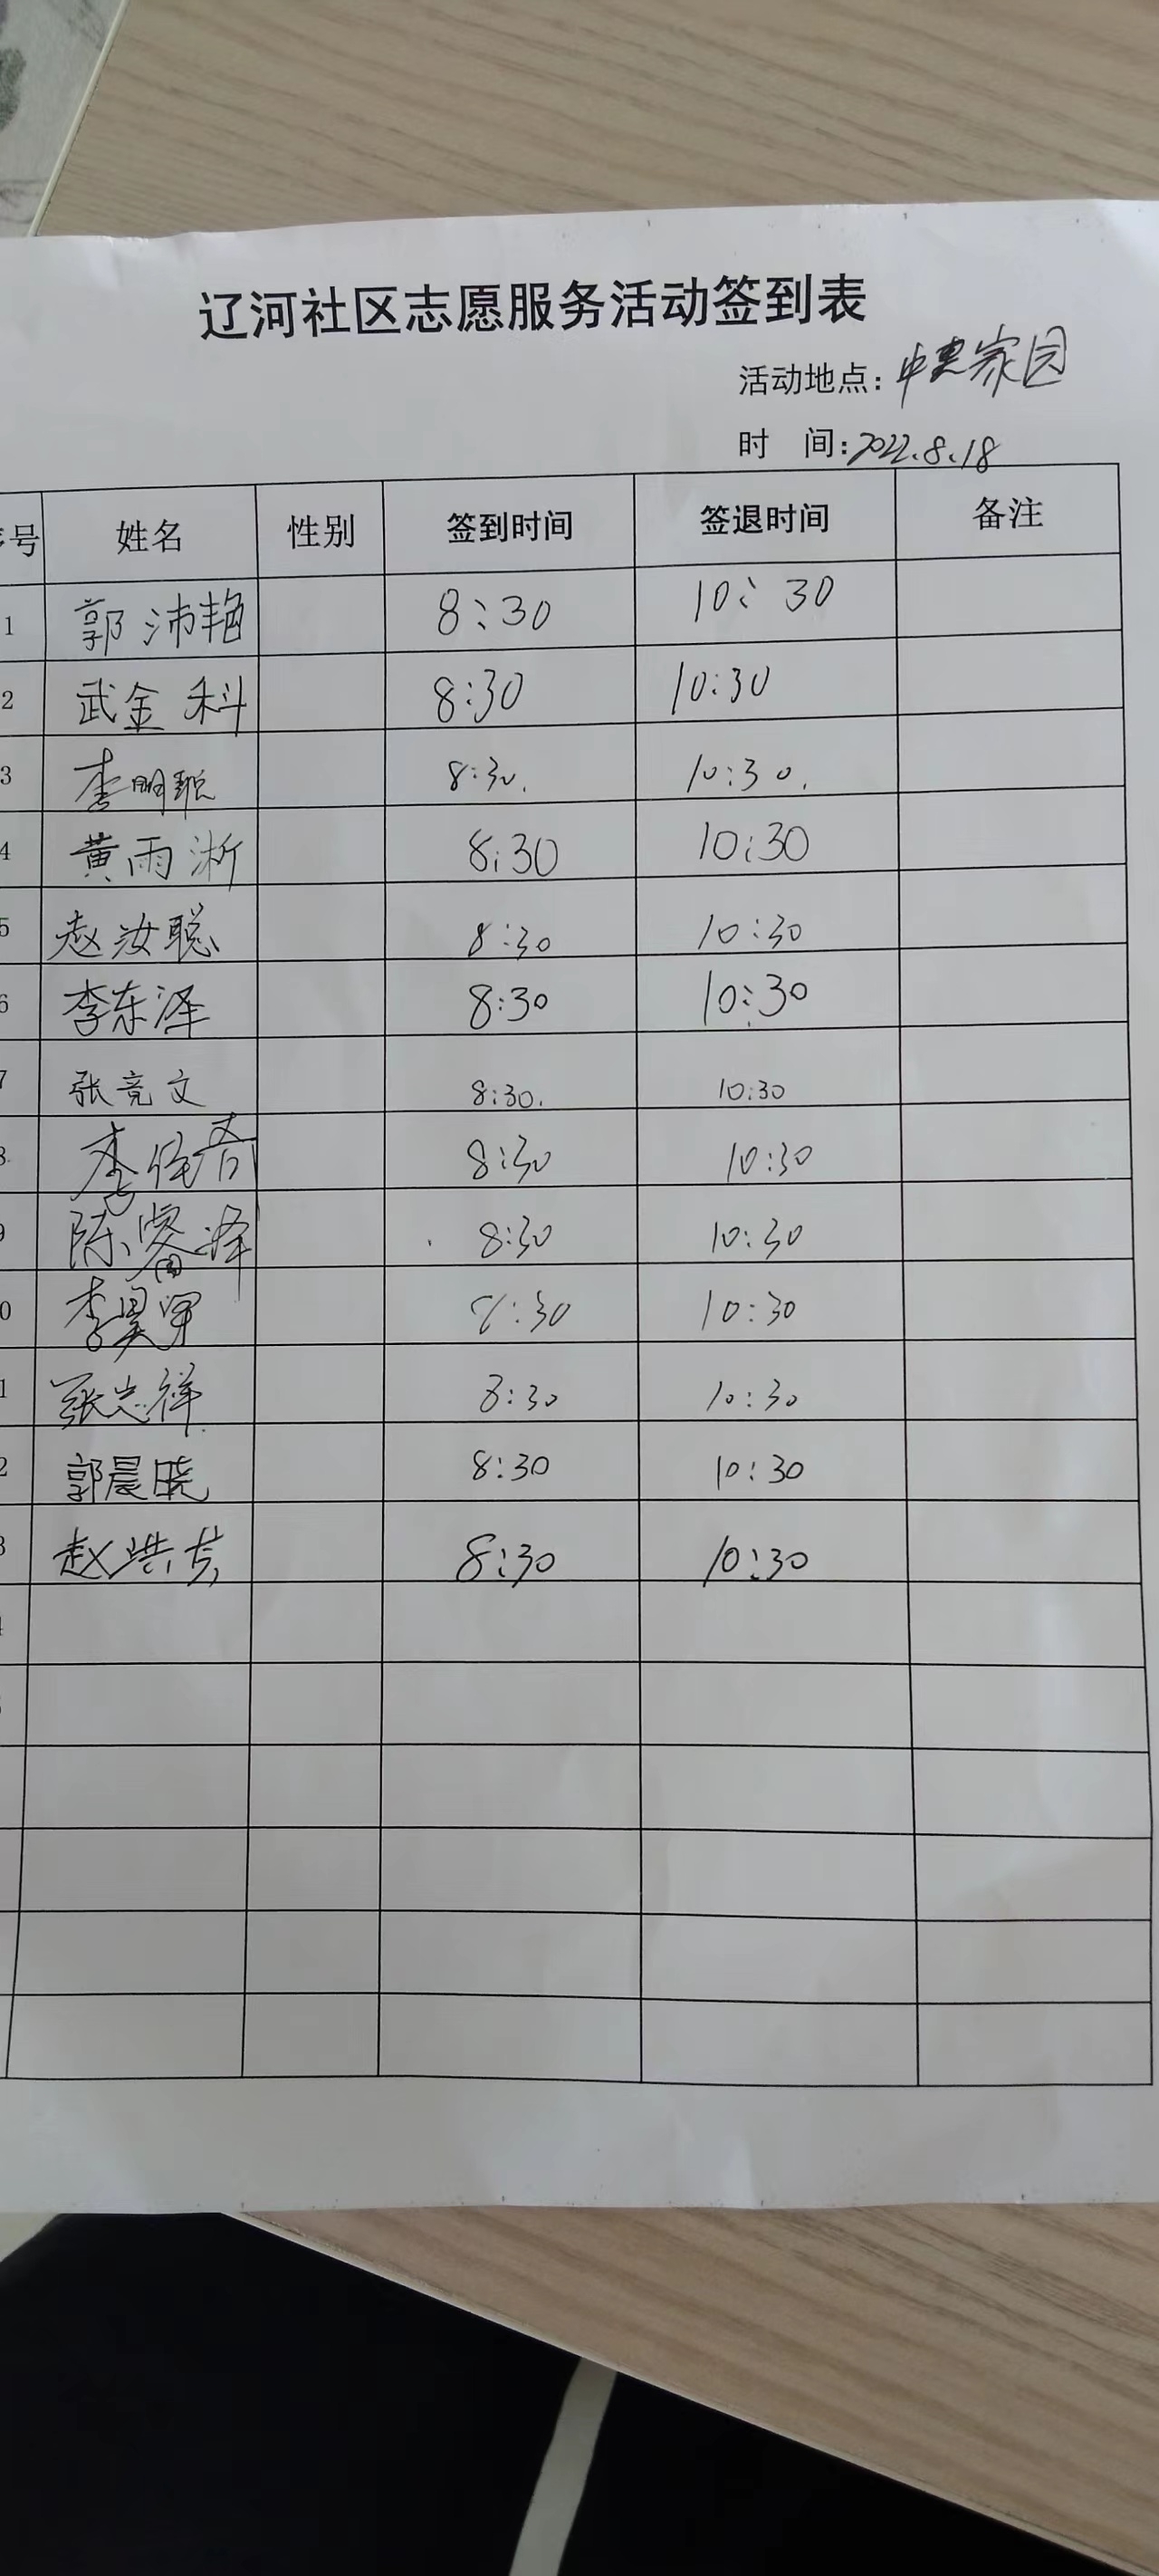 辽河社区志愿服务活动签到表
活动地点：中央家园
时 间：2022.8.18
序号 姓名 性别 签到时间 签退时间 备注
1 郭沛艳 8:30 10:30
2 武金科 8:30 10:30
3 李明聪 8:30. 10:30.
4 黄雨淅 8:30 10:30
5 赵汝聪 8:30 10:30
6 李东泽 8:30 10:30
7 张竞文 8:30. 10:30
8 李 8:30 10:30
9 陈睿泽 8:30 10:30
0 李昊 8:30 10:30
1 张忠祥 8:30 10:30
2 郭晨晓 8:30 10:30
3 赵洪 8:30 10:30